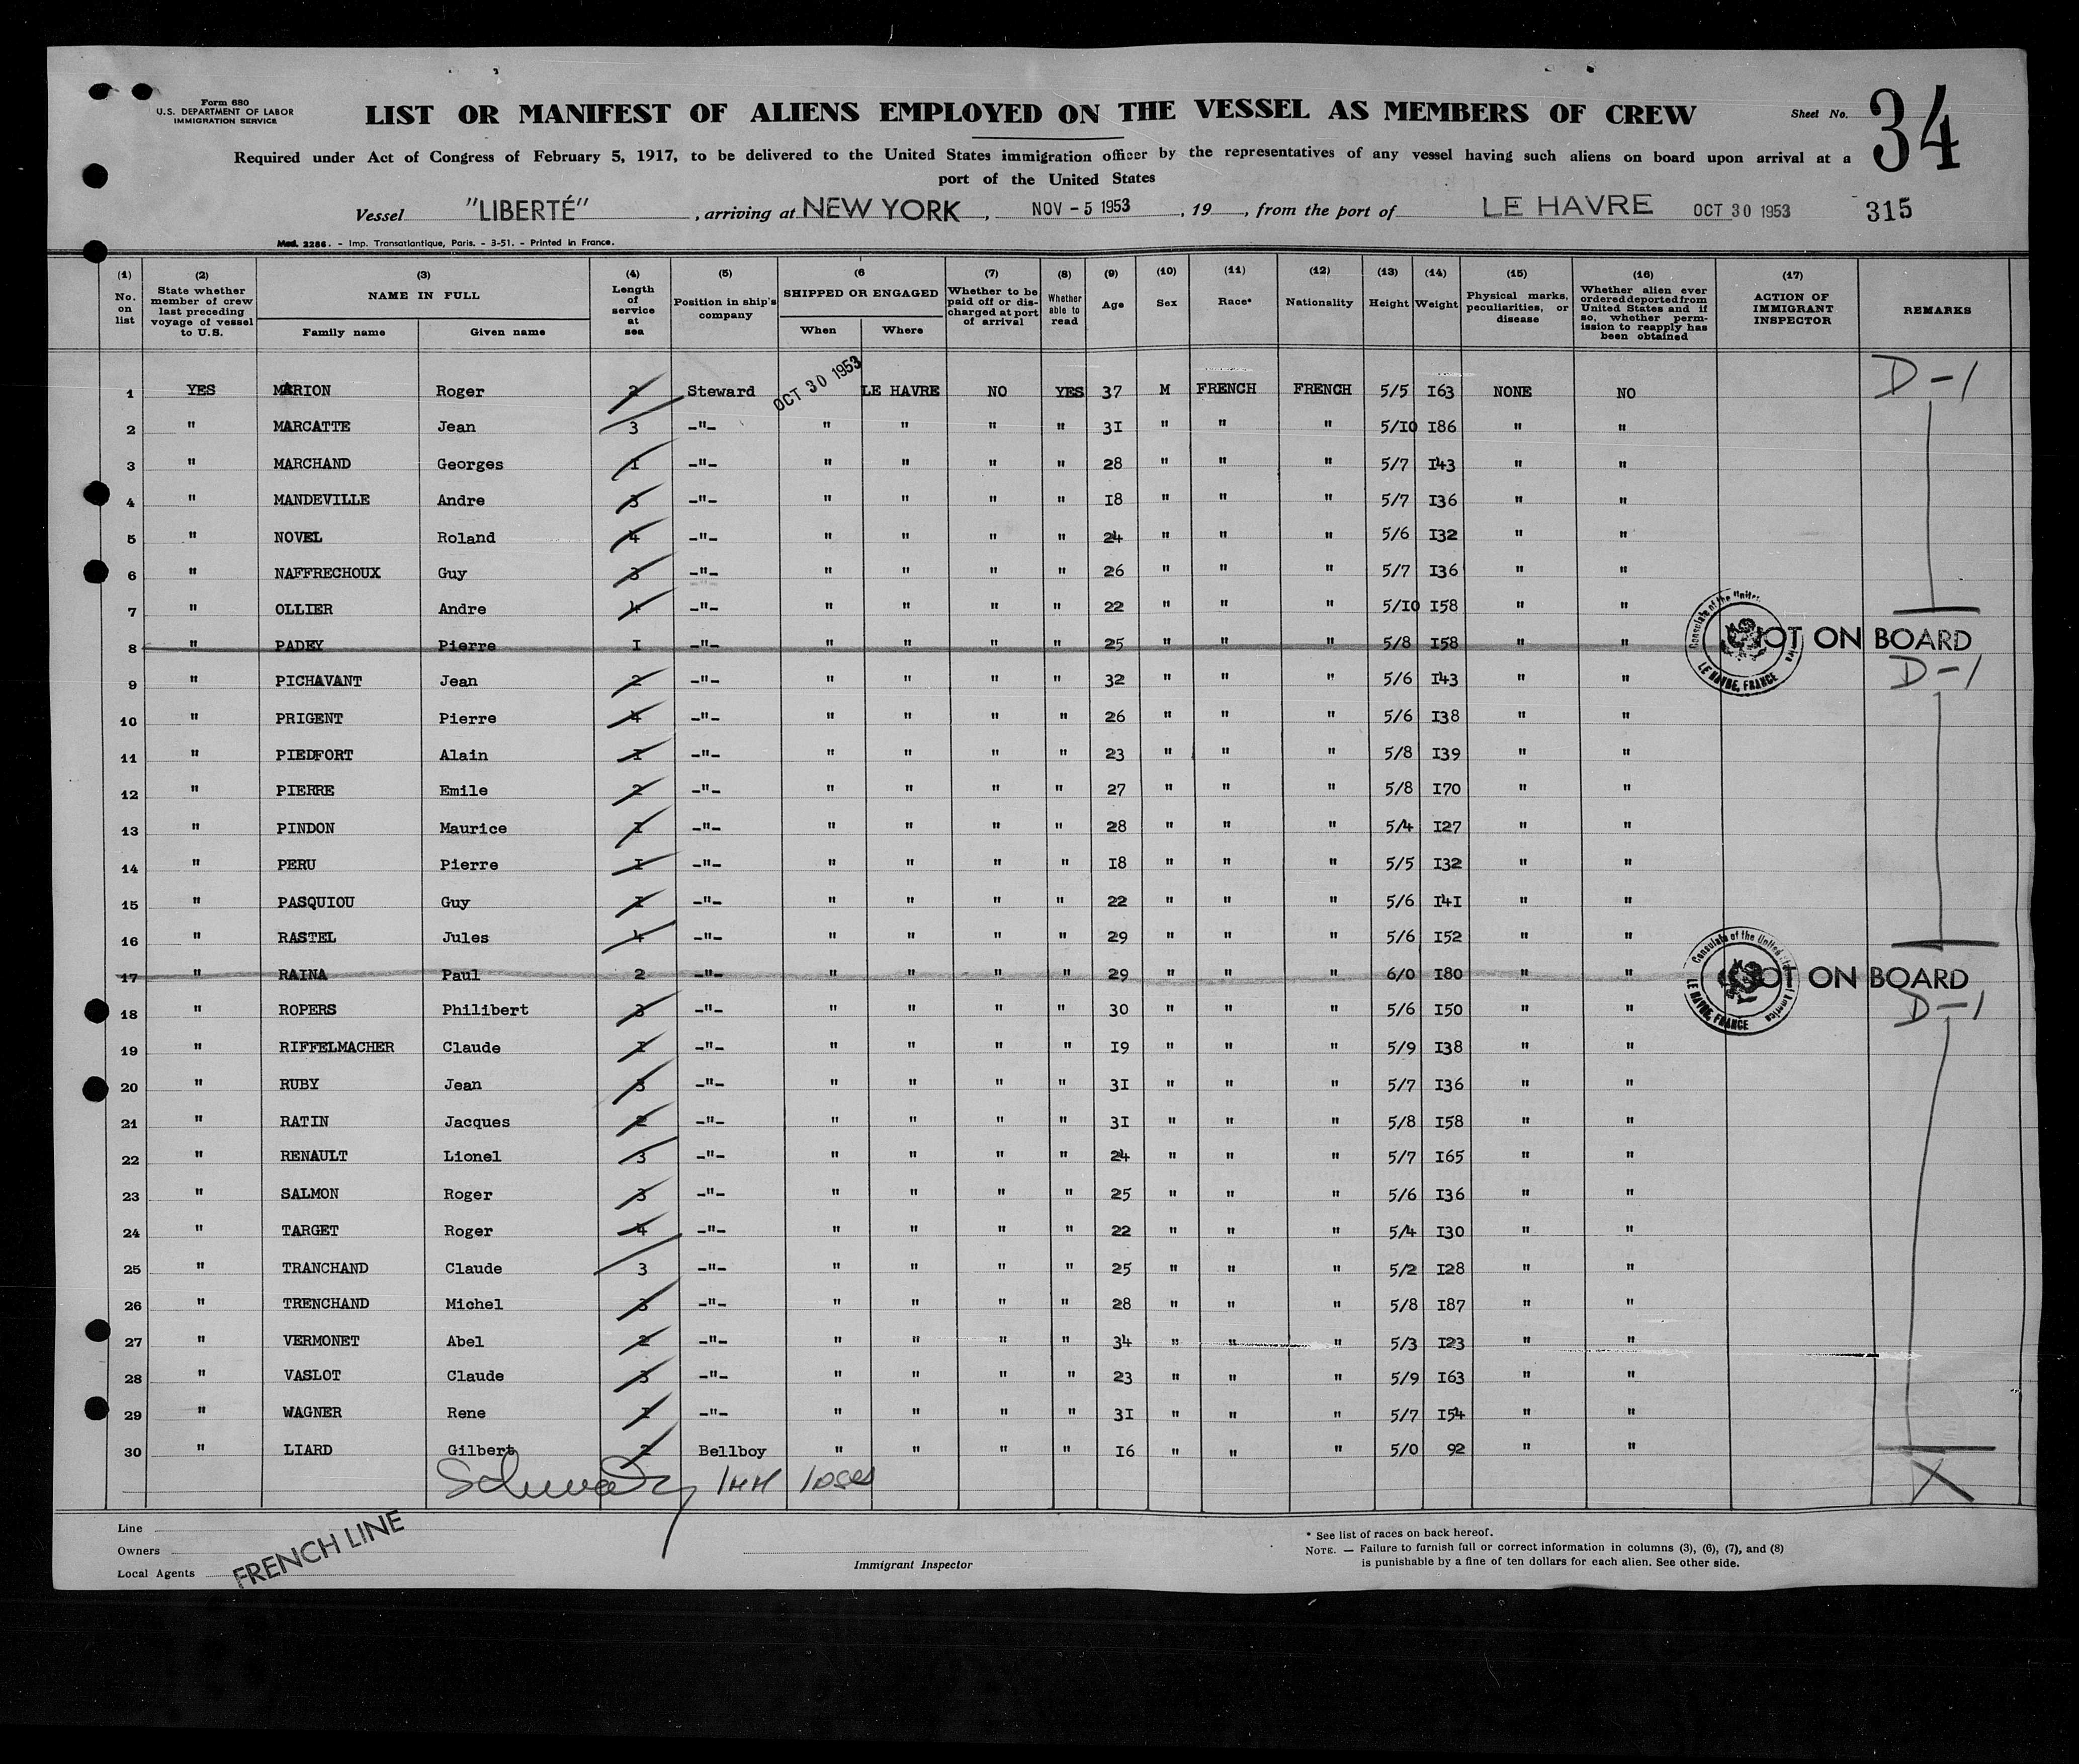 Form 680
U.S. DEPARTMENT OF LABOR
IMMIGRATION SERVICE
LIST OR MANIFEST OF ALIENS EMPLOYED ON THE VESSEL AS MEMBERS OF CREW
Sheet No. 34
Required under Act of Congress of February 5, 1917, to be delivered to the United States immigration officer by the representatives of any vessel having such aliens on board upon arrival at a
port of the United States
Vessel "LIBERTÉ", arriving at NEW YORK, NOV - 5 1953, 19, from the port of LE HAVRE OCT 30 1953 315
Mod. 2286. - Imp. Transatlantique, Paris. - 3-51. - Printed in France.
(1) No. on list
(2) State whether member of crew last preceding voyage of vessel to U.S.
(3) NAME IN FULL Family name Given name
(4) Length of service at sea
(5) Position in ship's company
(6 SHIPPED OR ENGAGED When Where
(7) Whether to be paid off or discharged at port of arrival
(8) Whether able to read
(9) Age
(10) Sex
(11) Race*
(12) Nationality
(13) Height
(14) Weight
(15) Physical marks, peculiarities, or disease
(16) Whether alien ever ordered deported from United States and if so, whether permission to reapply has been obtained
(17) ACTION OF IMMIGRANT INSPECTOR
REMARKS
1 YES MARION Roger 2 Steward OCT 30 1953 LE HAVRE NO YES 37 M FRENCH FRENCH 5/5 I63 NONE NO D-1
2 " MARCATTE Jean 3 -"- " " " " 3I " " " 5/I0 I86 " "
3 " MARCHAND Georges I -"- " " " " 28 " " " 5/7 I43 " "
4 " MANDEVILLE Andre 3 -"- " " " " I8 " " " 5/7 I36 " "
5 " NOVEL Roland 4 -"- " " " " 24 " " " 5/6 I32 " "
6 " NAFFRECHOUX Guy 3 -"- " " " " 26 " " " 5/7 I36 " "
7 " OLLIER Andre 4 -"- " " " " 22 " " " 5/I0 I58 " "
8 " PADEY Pierre I -"- " " " " 25 " " " 5/8 I58 " " OT ON BOARD
LE HAVRE, FRANCE
9 " PICHAVANT Jean 2 -"- " " " " 32 " " " 5/6 I43 " " D-1
10 " PRIGENT Pierre 4 -"- " " " " 26 " " " 5/6 I38 " "
11 " PIEDFORT Alain I -"- " " " " 23 " " " 5/8 I39 " "
12 " PIERRE Emile 2 -"- " " " " 27 " " " 5/8 I70 " "
13 " PINDON Maurice I -"- " " " " 28 " " " 5/4 I27 " "
14 " PERU Pierre I -"- " " " " I8 " " " 5/5 I32 " "
15 " PASQUIOU Guy I -"- " " " " 22 " " " 5/6 I4I " "
16 " RASTEL Jules 4 -"- " " " " 29 " " " 5/6 I52 " "
17 " RAINA Paul 2 -"- " " " " 29 " " " 6/0 I80 " " OT ON BOARD
Consulate of the United States of America
LE HAVRE, FRANCE
18 " ROPERS Philibert 3 -"- " " " " 30 " " " 5/6 I50 " " D-1
19 " RIFFELMACHER Claude I -"- " " " " I9 " " " 5/9 I38 " "
20 " RUBY Jean 3 -"- " " " " 3I " " " 5/7 I36 " "
21 " RATIN Jacques 2 -"- " " " " 3I " " " 5/8 I58 " "
22 " RENAULT Lionel 3 -"- " " " " 24 " " " 5/7 I65 " "
23 " SALMON Roger 3 -"- " " " " 25 " " " 5/6 I36 " "
24 " TARGET Roger 4 -"- " " " " 22 " " " 5/4 I30 " "
25 " TRANCHAND Claude 3 -"- " " " " 25 " " " 5/2 I28 " "
26 " TRENCHAND Michel 3 -"- " " " " 28 " " " 5/8 I87 " "
27 " VERMONET Abel 2 -"- " " " " 34 " " " 5/3 I23 " "
28 " VASLOT Claude 3 -"- " " " " 23 " " " 5/9 I63 " "
29 " WAGNER Rene I -"- " " " " 3I " " " 5/7 I54 " "
30 " LIARD Gilbert 2 Bellboy " " " " I6 " " " 5/0 92 " "
X
Line
Owners
Local Agents
FRENCH LINE
Immigrant Inspector
* See list of races on back hereof.
NOTE. — Failure to furnish full or correct information in columns (3), (6), (7), and (8)
is punishable by a fine of ten dollars for each alien. See other side.